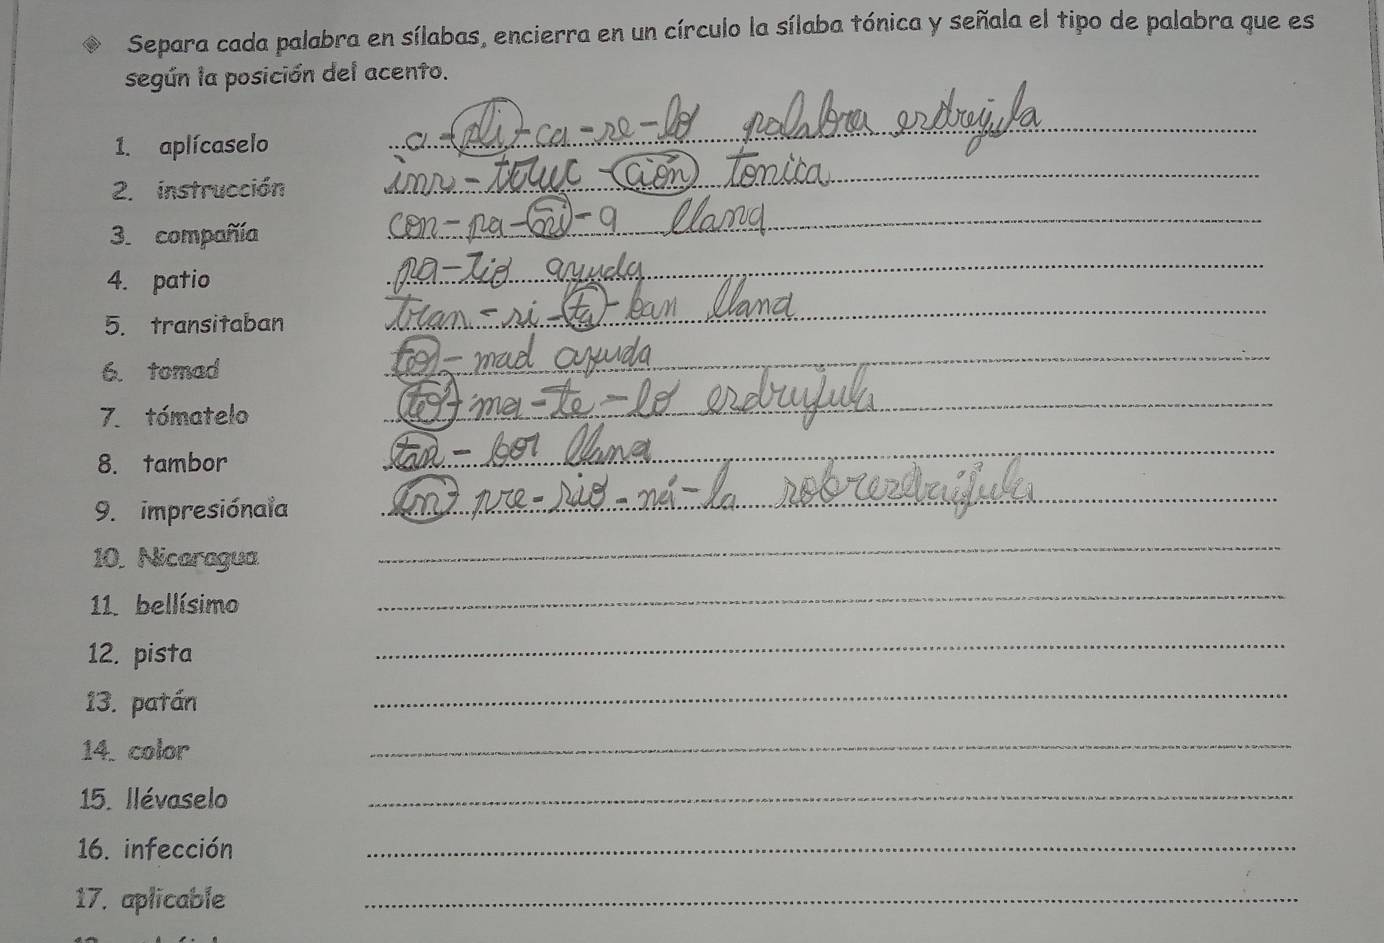 Separa cada palabra en sílabas, encierra en un círculo la sílaba tónica y señala el tipo de palabra que es
según la posición del acento.
1. aplícaselo a-pli-ca-se-lo palabra
2. instrucción ins-truc-ción tonica
3. compañía con-pa-ñi-a llana
4. patio pa-tio aguda
5. transitaban tran-si-ta-ban llana
6. tomad to-mad aguda
7. tómatelo tó-ma-te-lo
8. tambor tan-bor llana
9. impresiónala im-pre-sio-ná-la
10. Nicaragua
11. bellísimo
12. pista
13. patán
14. color
15. llévaselo
16. infección
17. aplicable